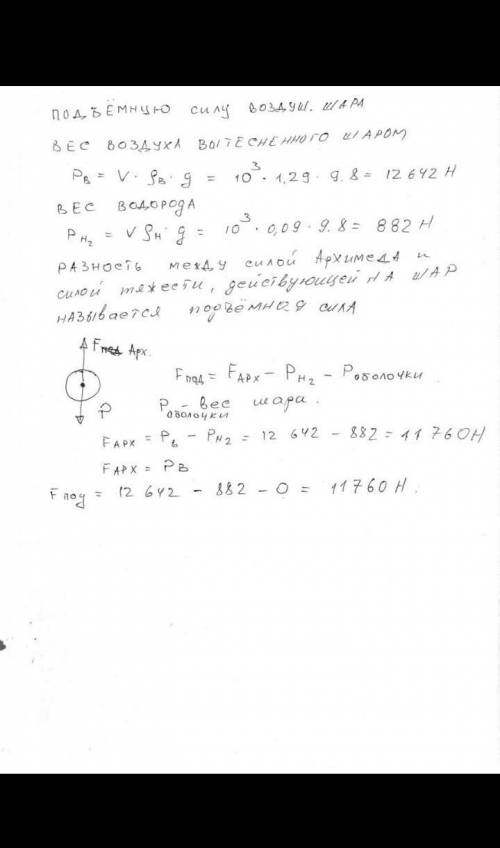 ПОДЪЁМНУЮ СИЛУ ВОЗДУШ. ШАРА
ВЕС ВОЗДУХА ВЫТЕСНЕННОГО ШАРОМ
Pв = V · ρв · g = 10³ · 1,29 · 9.8 = 12642 Н
ВЕС ВОДОРОДА
P H₂ = V ρн · g = 10³ · 0,09 · 9.8 = 882 Н
РАЗНОСТЬ МЕЖДУ СИЛОЙ АРХИМЕДА И
СИЛОЙ ТЯЖЕСТИ, ДЕЙСТВУЮЩЕЙ НА ШАР
НАЗЫВАЕТСЯ ПОДЪЁМНАЯ СИЛА
F Арх.
Fпод = FАРХ − P H₂ − Pоболочки
P
Pоболочки − вес шара.
FАРХ = Pв − P H₂ = 12 642 − 882 = 11 760Н
FАРХ = Pв
Fпод = 12 642 − 882 − 0 = 11760 Н.